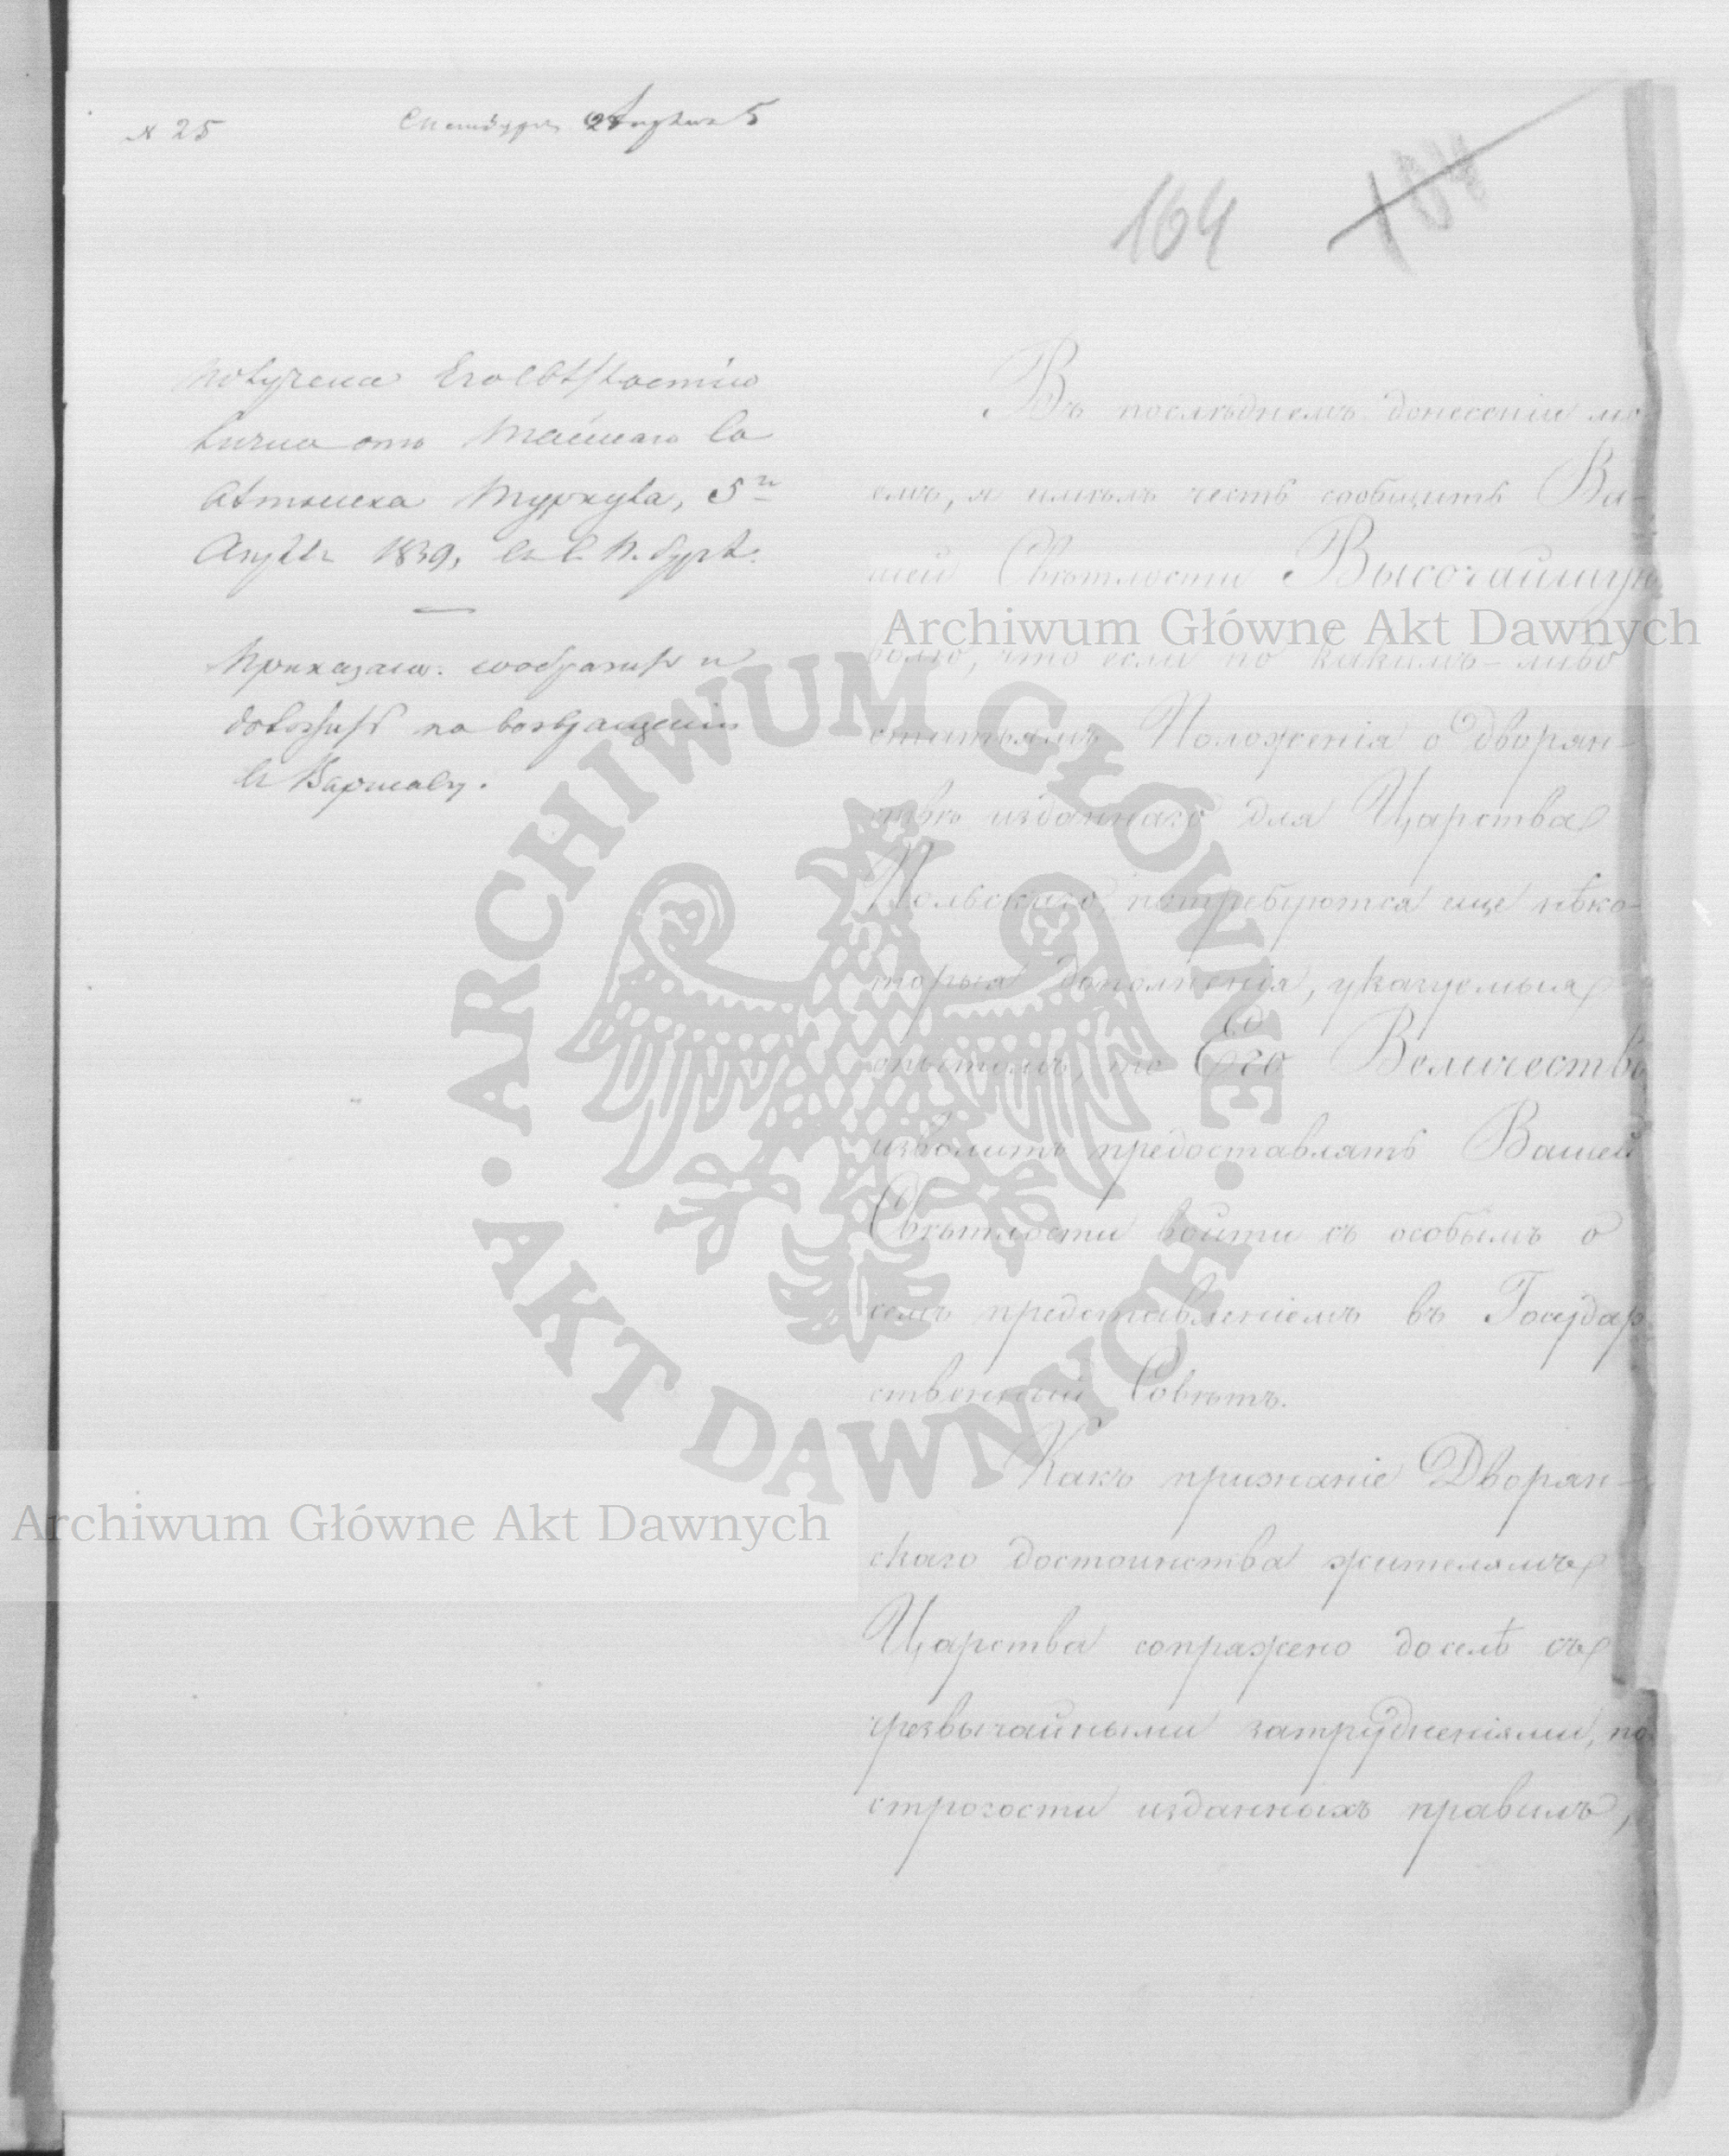 № 25
Августа 5
164
104
получена Его Свѣтлостію
лично отъ Тайнаго Со
вѣтника Туркула, 5го
Августа 1839, въ С. П. бургѣ.
Приказано: сообразить и
доложить по возвращеніи
въ Варшаву.
Въ послѣднемъ донесеніи мо
емъ, я имѣлъ честь сообщить Ва-
шей Свѣтлости Высочайшую
волю, что если по какимъ-либо
статьямъ Положенія о Дворян-
ствѣ изданнаго для Царства
Польскаго, потребуются еще нѣко-
торыя дополненія, указуемыя
опытомъ, то Его Величество
изволитъ предоставлять Вашей
Свѣтлости войти съ особымъ о
семъ представленіемъ въ Государ
ственный Совѣтъ.
Какъ признаніе Дворян-
скаго достоинства жителямъ
Царства сопряжено доселѣ съ
чрезвычайными затрудненіями, по
строгости изданныхъ правилъ,
Archiwum Główne Akt Dawnych
Archiwum Główne Akt Dawnych
ARCHIWUM GŁÓWNE
AKT DAWNYCH